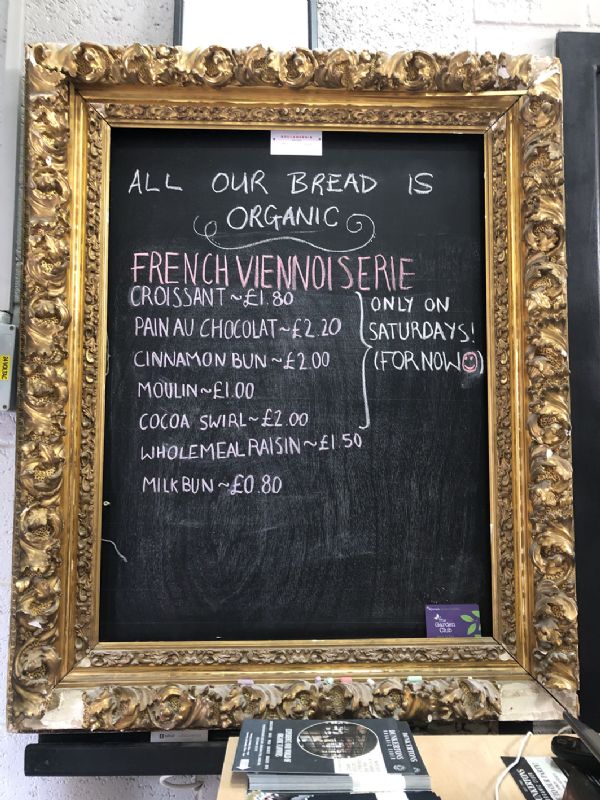 ALL OUR BREAD IS
ORGANIC
FRENCH VIENNOISERIE
CROISSANT ~ £1.80
PAIN AU CHOCOLAT ~ £2.20
CINNAMON BUN ~ £2.00
MOULIN ~ £1.00
COCOA SWIRL ~ £2.00
ONLY ON
SATURDAYS!
(FOR NOW)
WHOLEMEAL RAISIN ~ £1.50
MILK BUN ~ £0.80
The
Garden
Club